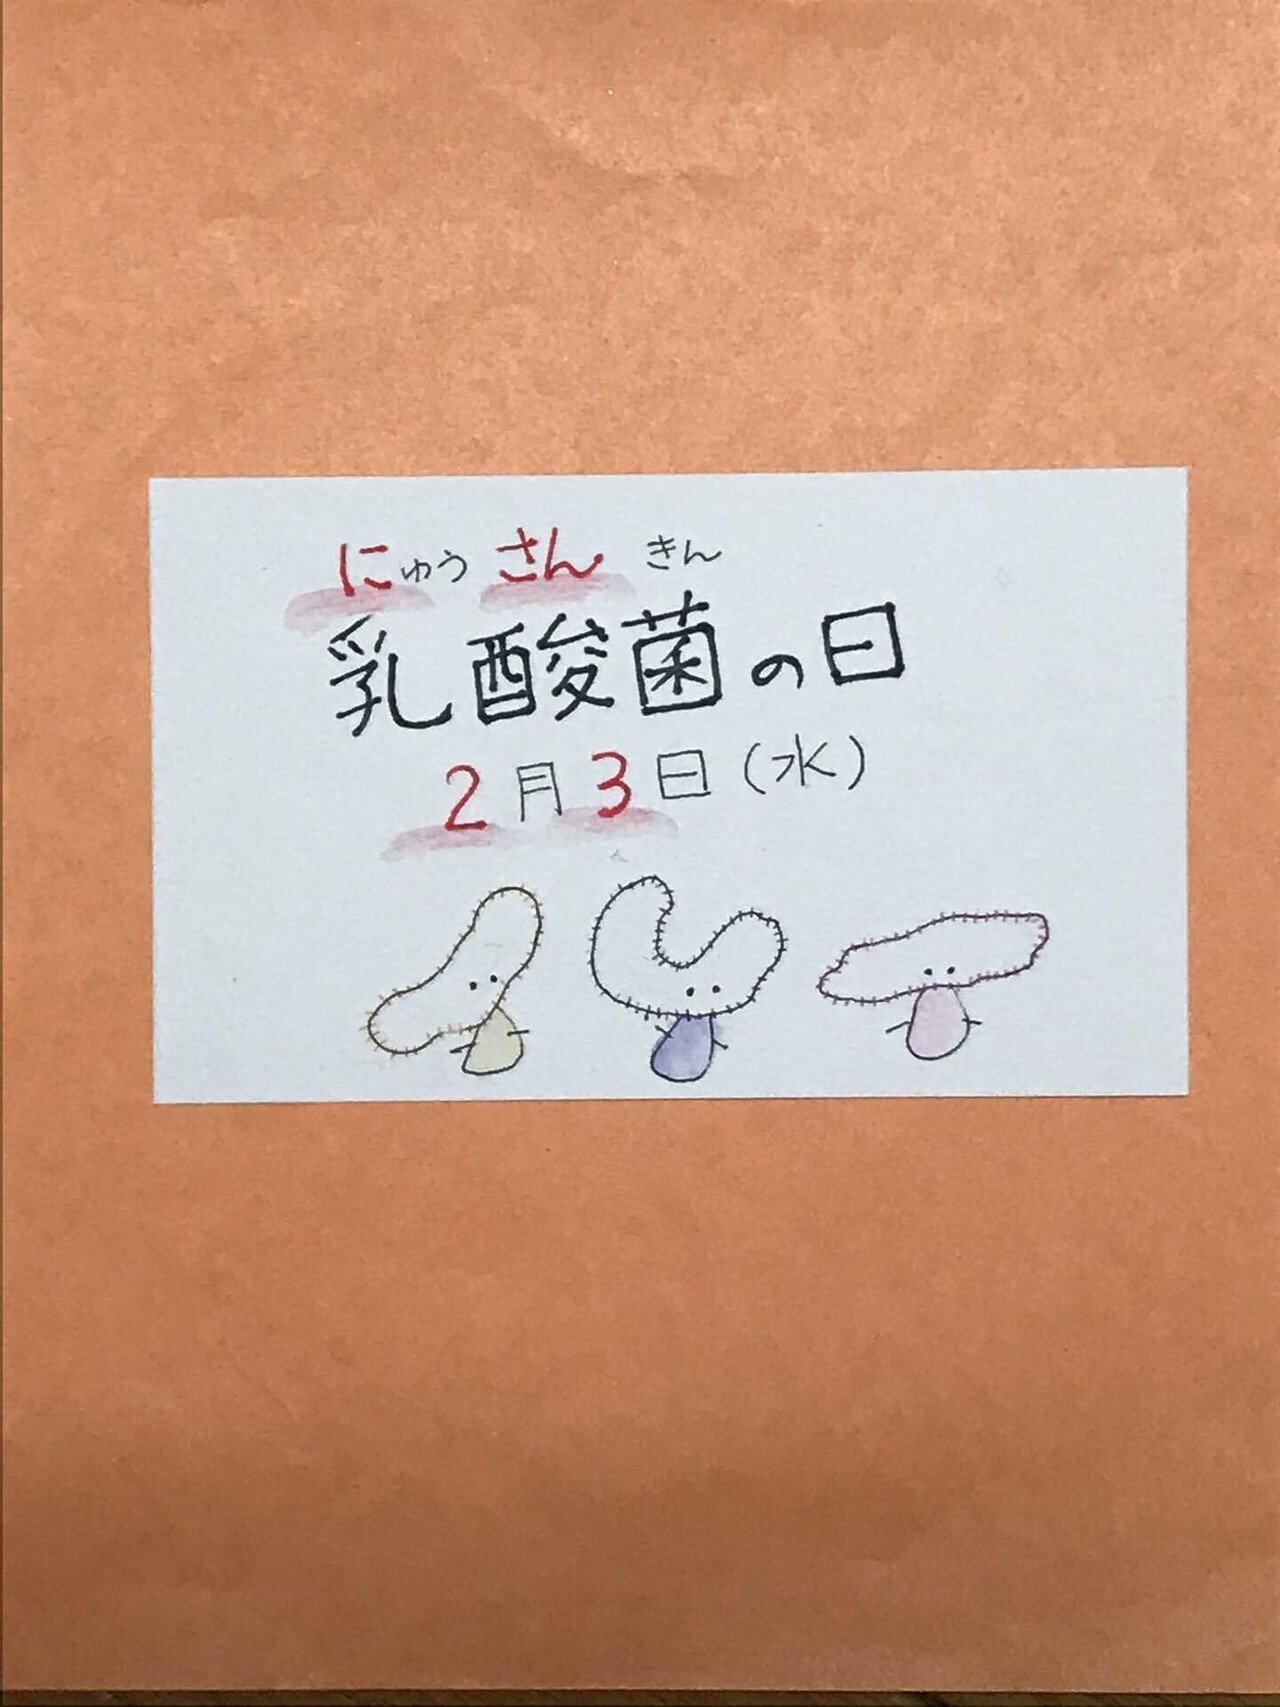 にゅうさんきん
乳酸菌の日
2月3日(水)